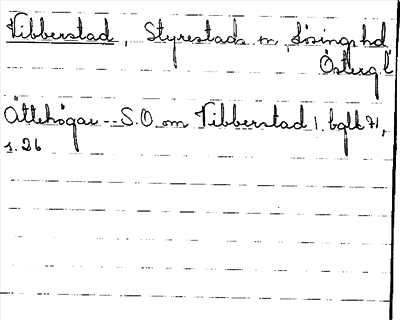 Vibberstad, Styrestads sn, Lösings hd
Östergöt
Ättehögar -- S.O. om Vibberstad 1. bglb 71,
s. 26